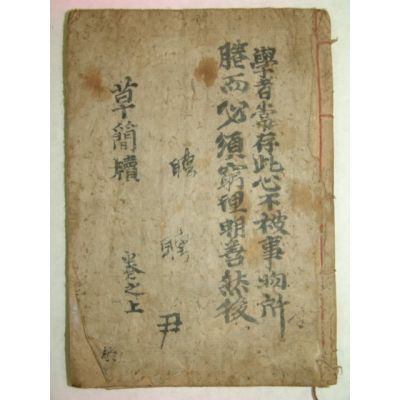 學者常存此心不被事物所
勝而必須窮理明善然後
尹
草簡牘
卷之上